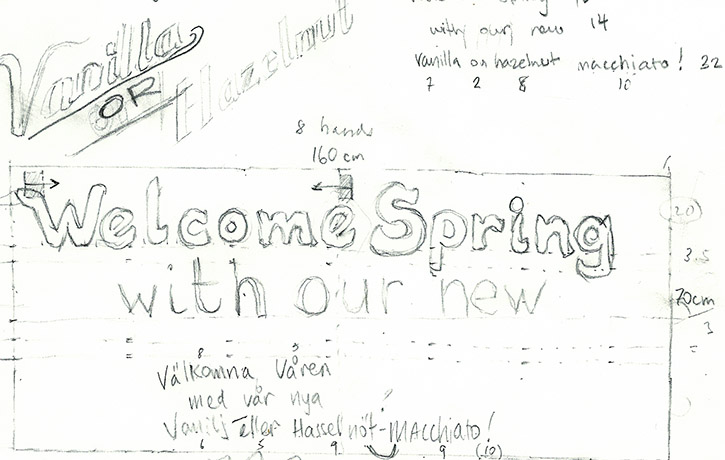 Vanilla
OR
Hazelnut
Spring
with our new 14
vanilla or hazelnut macchiato! 32
7 2 8 10
8 hands
160 cm
Welcome Spring
20
3.5
with our new
70cm
3
8
Välkomna Våren
med vår nya
Vanilj eller Hasselnöt-Macchiato!
6 5 9 9 (10)